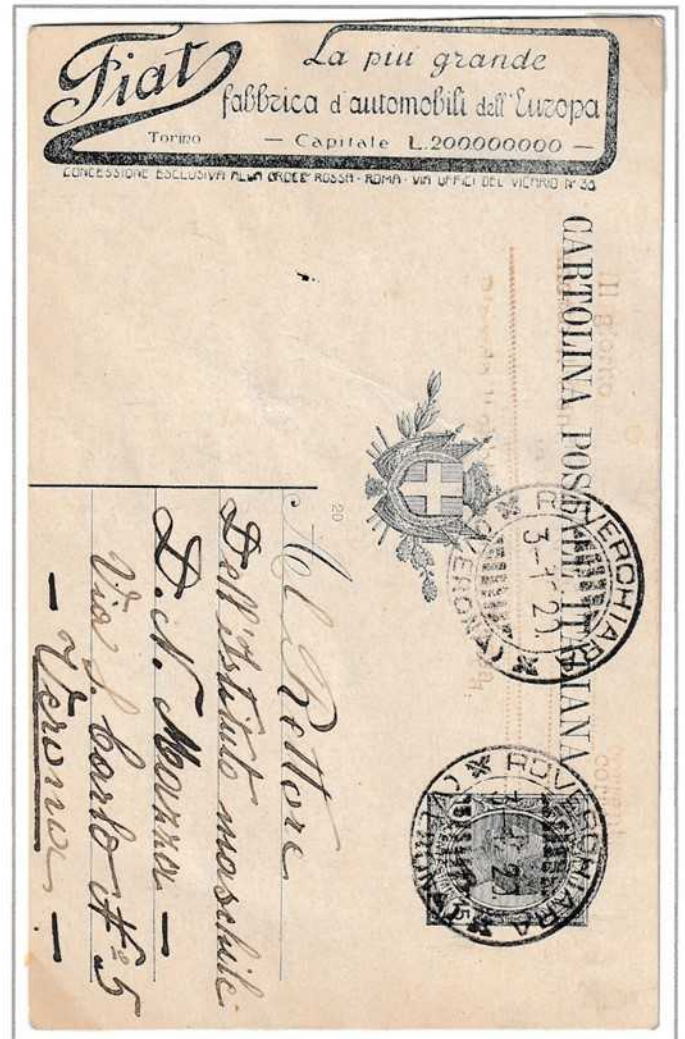 Fiat
La più grande
fabbrica d'automobili dell'Europa
Torino — Capitale L.200000000 —
CONCESSIONE ESCLUSIVA ALLA CROCE ROSSA - ROMA - VIA UFFICI DEL VICARIO Nº 35
CARTOLINA POSTALE ITALIANA
ROVERCHIARA
(VERONA)
20
ROVERCHIARA
(VERONA)
20
Al Rettore
Dell'Istituto maschile
D. N. Mazza —
Via S. Carlo Nº 5
— Verona —